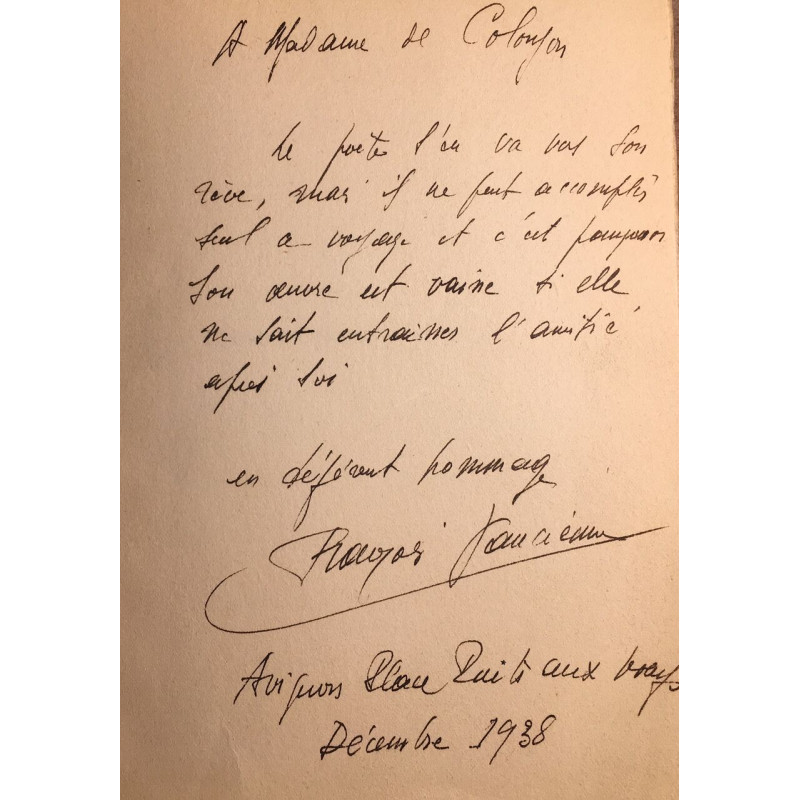 A Madame de Colonjon
Le poète s'en va vers son
rêve, mais il ne peut accomplir
seul ce voyage et c'est pourquoi
son œuvre est vaine si elle
ne sait entraîner l'amitié
après soi
en déférent hommage
François
Avignon Place Puits aux
Décembre 1938